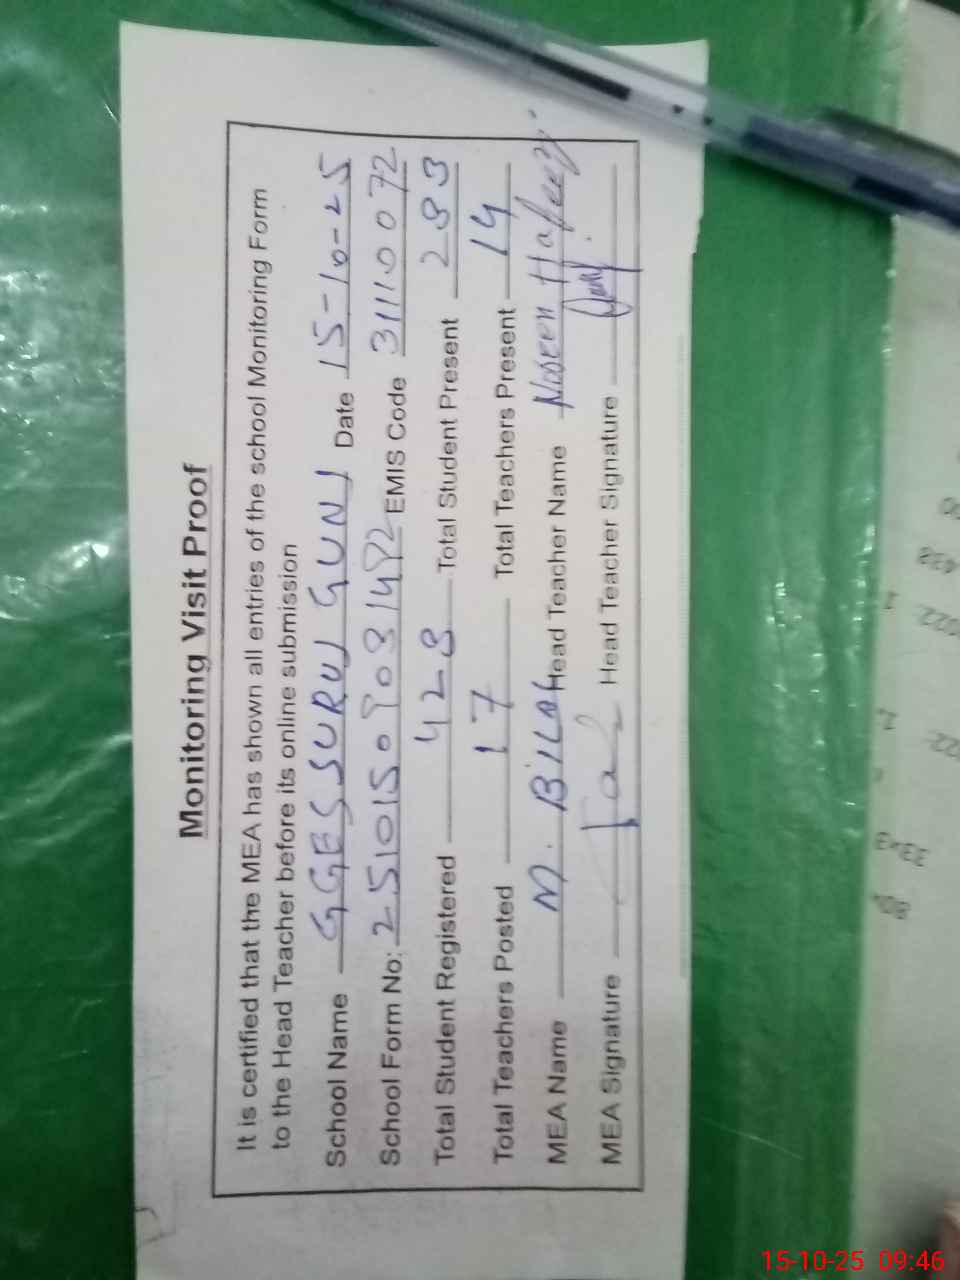 Monitoring Visit Proof
It is certified that the MEA has shown all entries of the school Monitoring Form
to the Head Teacher before its online submission
School Name GGES SURUJ GUNJ Date 15-10-25
School Form No: EMIS Code 31110072
Total Student Registered 428 Total Student Present 283
Total Teachers Posted 17 Total Teachers Present 14
MEA Name M. BILAL Head Teacher Name Noreen Hafeez
MEA Signature Head Teacher Signature
15-10-25 09:46